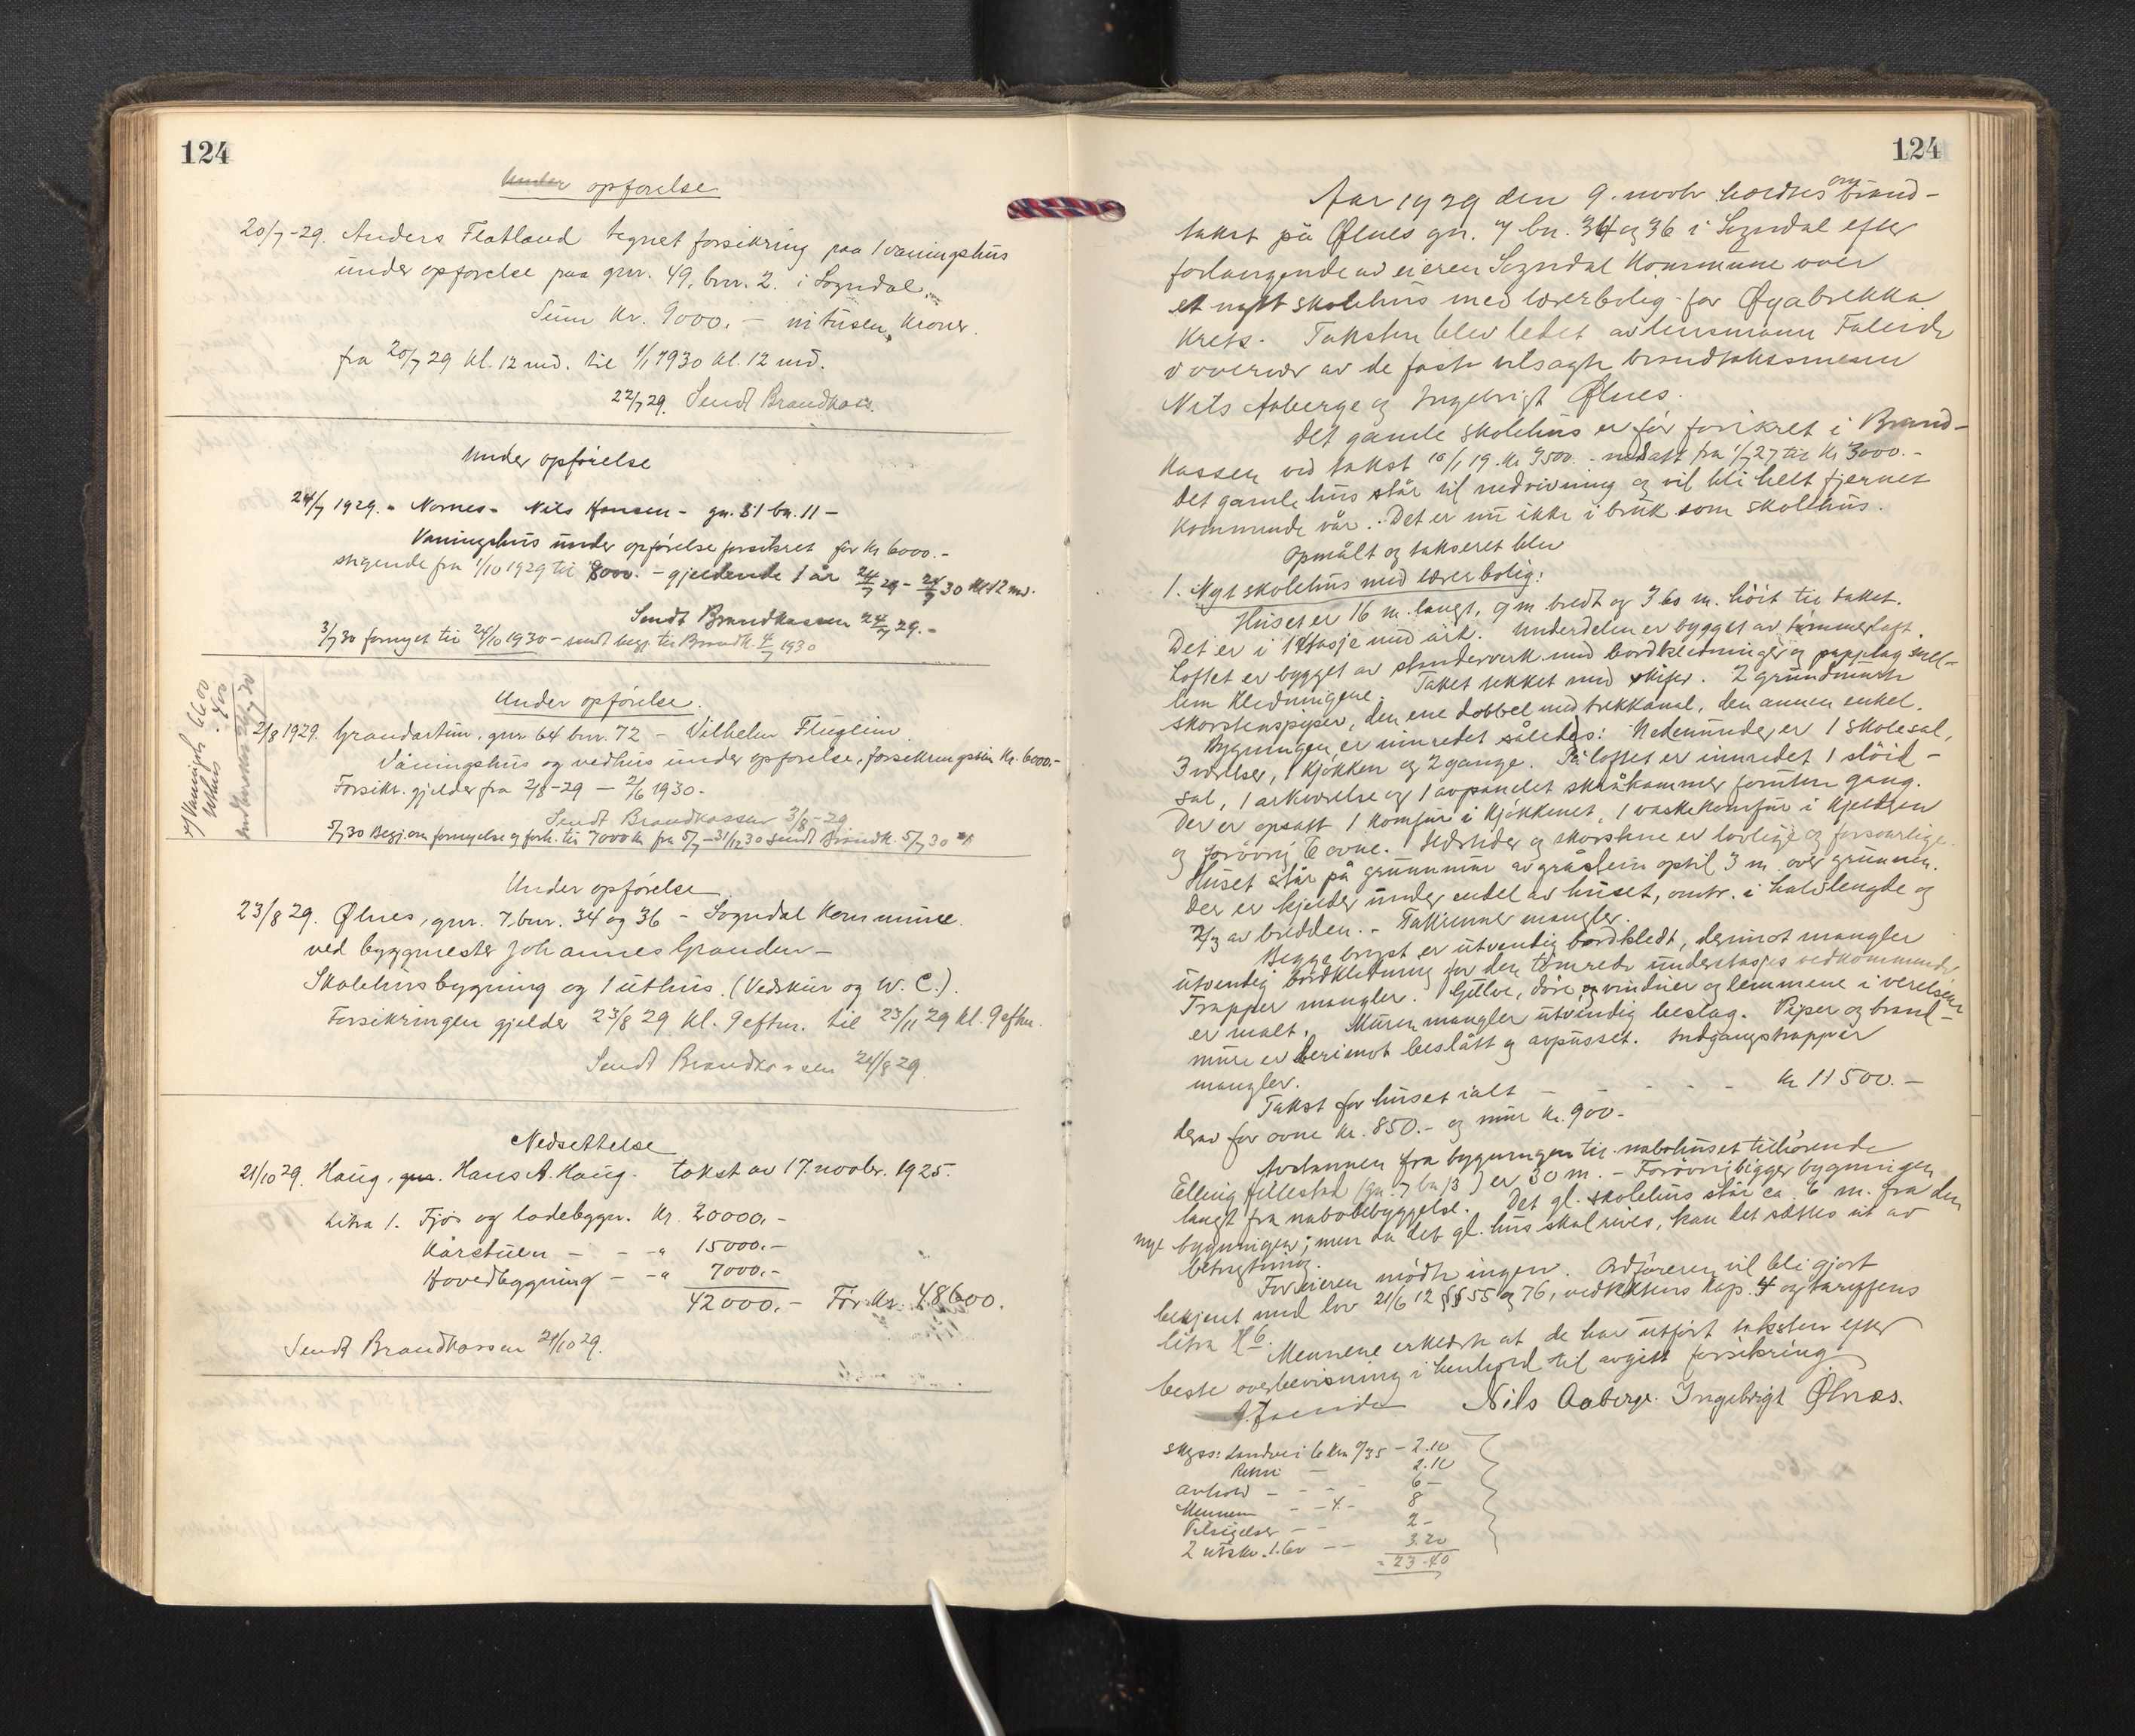 124
Under opførelse
20/7-29. Anders Flatland tegnet forsikring paa 1 vaaningshus
under opførelse paa gnr. 49, bnr. 2. i Sogndal.
Sum Kr. 9000.- ni tusen Kroner.
fra 20/7 29 Kl. 12 md. til 1/1 1930 Kl. 12 md.
22/7 29. Sendt Brandkass.
Under opførelse
24/7 1929. - Nornes - Nils Hansen - gn. 31 bn. 11 -
Vaningshus under opførelse forsikret for Kr 6000.-
stigende fra 1/10 1929 til 8000. - gjeldende 1 år 24/7 29 - 24/7 30 Kl 12 md.
Sendt Brandkassen 24/7 29.-
3/7 30 fornyet til 24/10 1930 - sendt begj. til Brandk. 4/7 1930
Under opførelse.
2/8 1929. Grandastün, gnr 64 bnr. 72 - Vilhelm Flugheim
Våningshus og vedhus under opførelse, forsikringssum Kr. 6000.-
Forsikr. gjelder fra 2/8-29 - 2/6 1930.-
Sendt Brandkassen 3/8-29
5/7 30 Begj. om fornyelse og forh. til 7000 kr fra 5/7 - 31/12 30 sendt Brandk. 5/7 30
Under opførelse
23/8 29. Ølnes, gnr. 7, bnr. 34 og 36 - Sogndal Kommune.
ved byggmester Johannes Granden -
Skolehusbygning og 1 uthus. (Vedskur og W.C.).
Forsikringen gjelder 23/8 29 Kl. 9 eftm. til 23/11 29 kl. 9 eftm.
Sendt Brandkassen 24/8 29.
Nedsettelse
21/10 29. Haug, Hans A. Haug. takst av 17. novbr. 1925.
Litra 1. Fjøs og ladebygn. Kr. 20000.-
Kårstuen - - -" 15000.-
Hovedbygning - -" 7000.-
42000.- Før Kr. 48600.
Sendt Brandkassen 21/10 29.
124
Aar 1929 den 9. novbr holdtes brand-
takst på Ølnes gn. 7 bn. 34 og 36 i Sogndal efter
forlangende av eieren Sogndal Kommune over
et nytt skolehus med lærerbolig for Øyabrekka
Krets. Taksten blev ledet av lensmann Faleide
i overvær av de faste utsagte brandtakstmenn
Nils Aaberge og Ingebrigt Ølnes.
Det gamle skolehus er før forsikret i Brand-
kassen ved takst 10/1 19. Kr 9500. - nedsatt fra 1/7 27 til Kr 3000.-
Det gamle hus står til nedrivning og vil bli helt fjernet
Kommende vår. Det er nu ikke i bruk som skolehus.
Opmålt og takseret blev
1. Nyt skolehus med lærerbolig:
Huset er 16 m. langt, 9 m bredt og 3.60 m. höit til taket.
Det er i 1 etasje med ark. Underdelen er bygget av tømmer, loft.
Loftet er bygget av stenderverk med bordkledninger og papplag mel-
lem Kledningene. Taket tekket med skifer. 2 grundmurte
skorstenspiper, den ene dobbel med trekkanal, den annen enkel.
Bygningen er innredet således: Nedenunder er 1 skolesal,
3 værelser, 1 Kjøkken og 2 gange. På loftet er innredet 1 slöid-
sal, 1 arkværelse og 1 avpanelet skråkammer foruten gang.
Der er opsatt 1 Komfur i Kjøkkenet, 1 vaskekomfur i Kjelderen
og forövrig 6 ovne. Ildsteder og skorstene er lovlige og forsvarlige.
Huset står på grunnmur av gråstein optil 3 m over grunnen.
Der er kjelder under endel av huset, omtr. i halvlengde og
2/3 av bredden. - Takrenner mangler.
Begge bryst er utvendig bordkledt, derimot mangler
utvendig bordkledning for den tömrede understasjes vedkommende
Trapper mangler. Gulve, döre og vinduer og lemmene i verelsene
er malt. Muren mangler utvendig beslag. Piper og brand-
mure er derimot beslått og avpusset. Indgangstrapper
mangler.
Takst for huset ialt - - - - - Kr 11500.-
derav for ovne Kr. 850.- og mur Kr. 900.-
Avstannen fra bygningen til nabohuset tilhörende
Elling Fillestad (gn. 7 bn 13) er 30 m. - Forövrig ligger bygningen
langt fra nabobebyggelse. Det gl. skolehus står ca. 6 m. fra den
nye bygningen; men da det gl. hus skal rives, kan det settes ut av
betragtning.
For eieren mödte ingen. Ordføreren vil bli gjort
bekjent med lov 21/6 12 §§ 55 og 76, vedtektens Kap. 4 og tariffens
litra H 6.
Mennene erklærte at de har utført taksten efter
beste overbevisning i henhold til avgitt forsikring
A. Faleide Nils Aaberge. Ingebrigt Ølnes.
Skyss: Landvei 6 Km a/35 - 2.10
Retur - 2.10
Avhold - - - 6-
Mennene - - 4.- 8
Tilsigelser - - 2-
2 utskr. 1.60 - - 3.20
- 23.40